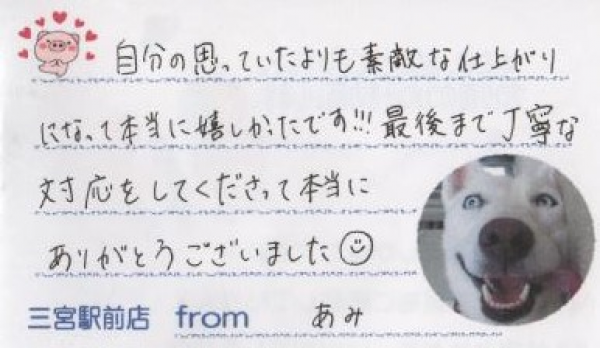 自分の思っていたよりも素敵な仕上がり
になって本当に嬉しかったです!!!最後まで丁寧な
対応をしてくださって本当に
ありがとうございました☺
三宮駅前店 from あみ